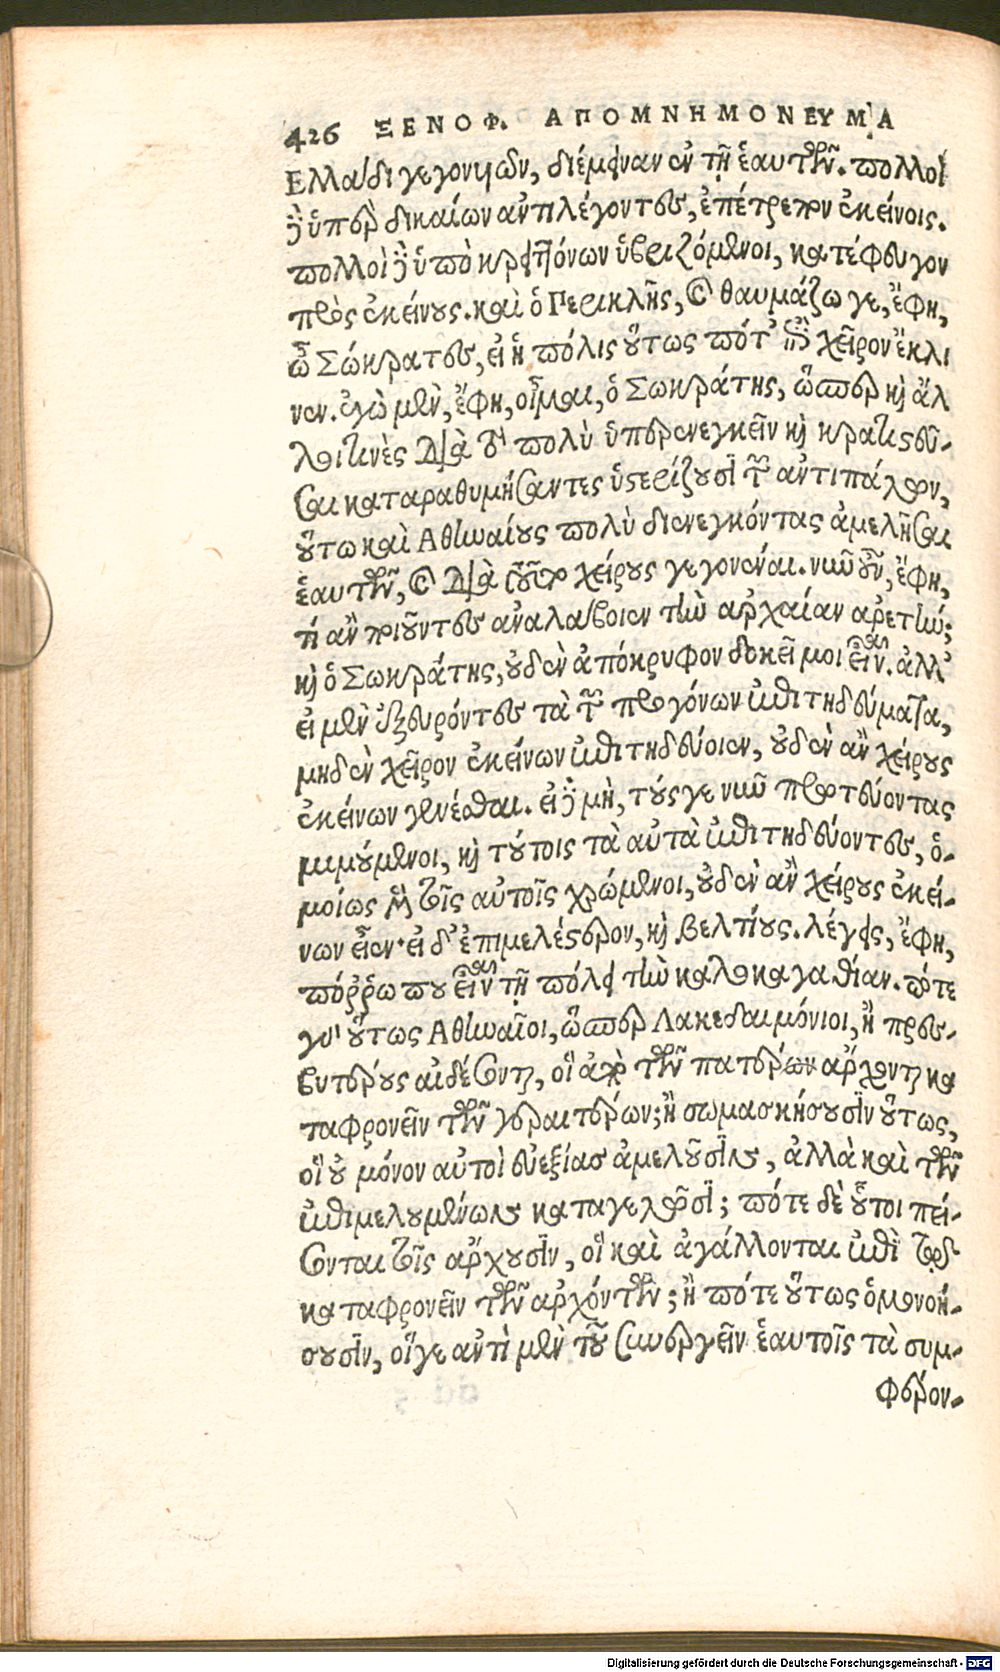 426 ΞΕΝΟΦ. ΑΠΟΜΝΗΜΟΝΕΥΜΑ
Ἑλλάδι γεγονυιῶν, διέμειναν ἐν τῇ ἑαυτῶν. πολλοὶ
δὲ ὑπὲρ δικαίων ἀντιλέγοντες, ἐπέτρεπον ἐκείνοις.
πολλοὶ δὲ ὑπὸ κρειττόνων ὑβριζόμενοι, κατέφευγον
πρὸς ἐκείνους. καὶ ὁ Περικλῆς, καὶ θαυμάζω γε, ἔφη,
ὦ Σώκρατες, εἰ ἡ πόλις οὕτως πότ' ἐπὶ χεῖρον ἔκλι
νεν. ἐγὼ μὲν, ἔφη, οἶμαι, ὁ Σωκράτης, ὥσπερ καὶ ἄλ
λοι τινὲς διὰ τὸ πολὺ ὑπερενεγκεῖν καὶ κρατιστεῦ-
σαι καταραθυμήσαντες ὑστερίζουσι τῶν ἀντιπάλων,
οὕτω καὶ Ἀθηναίους πολὺ διενεγκόντας ἀμελῆσαι
ἑαυτῶν, καὶ διὰ τοῦτο χείρους γεγονέναι. νῦν οὖν, ἔφη,
τί ἂν ποιοῦντες ἀναλάβοιεν τὴν ἀρχαίαν ἀρετήν;
καὶ ὁ Σωκράτης, οὐδὲν ἀπόκρυφον δοκεῖ μοι εἶναι. ἀλλ'
εἰ μὲν ἐξευρόντες τὰ τῶν προγόνων ἐπιτηδεύματα,
μηδὲν χεῖρον ἐκείνων ἐπιτηδεύοιεν, οὐδὲν ἂν χείρους
ἐκείνων γενέσθαι. εἰ δὲ μὴ, τούς γε νῦν πρωτεύοντας
μιμούμενοι, καὶ τούτοις τὰ αὐτὰ ἐπιτηδεύοντες, ὁ-
μοίως μὲν τοῖς αὐτοῖς χρώμενοι, οὐδὲν ἂν χείρους ἐκεί-
νων εἶεν· εἰ δ' ἐπιμελέστερον, καὶ βελτίους. λέγεις, ἔφη,
πόῤῥω που εἶναι τῇ πόλει τὴν καλοκαγαθίαν. πότε
γὰρ οὕτως Ἀθηναῖοι, ὥσπερ Λακεδαιμόνιοι, ἢ πρεσ-
βυτέρους αἰδέσονται, οἳ ἀπὸ τῶν πατέρων ἄρχονται κα
ταφρονεῖν τῶν γεραιτέρων; ἢ σωμασκήσουσιν οὕτως,
οἳ οὐ μόνον αὐτοὶ εὐεξίας ἀμελοῦσιν, ἀλλὰ καὶ τῶν
ἐπιμελουμένων καταγελῶσι; πότε δὲ οὗτοι πεί-
σονται τοῖς ἄρχουσιν, οἳ καὶ ἀγάλλονται ἐπὶ τῷ
καταφρονεῖν τῶν ἀρχόντων; ἢ πότε οὕτως ὁμονοή-
σουσιν, οἵγε ἀντὶ μὲν τοῦ συνεργεῖν ἑαυτοῖς τὰ συμ-
φέρον-
Digitalisierung gefördert durch die Deutsche Forschungsgemeinschaft - DFG